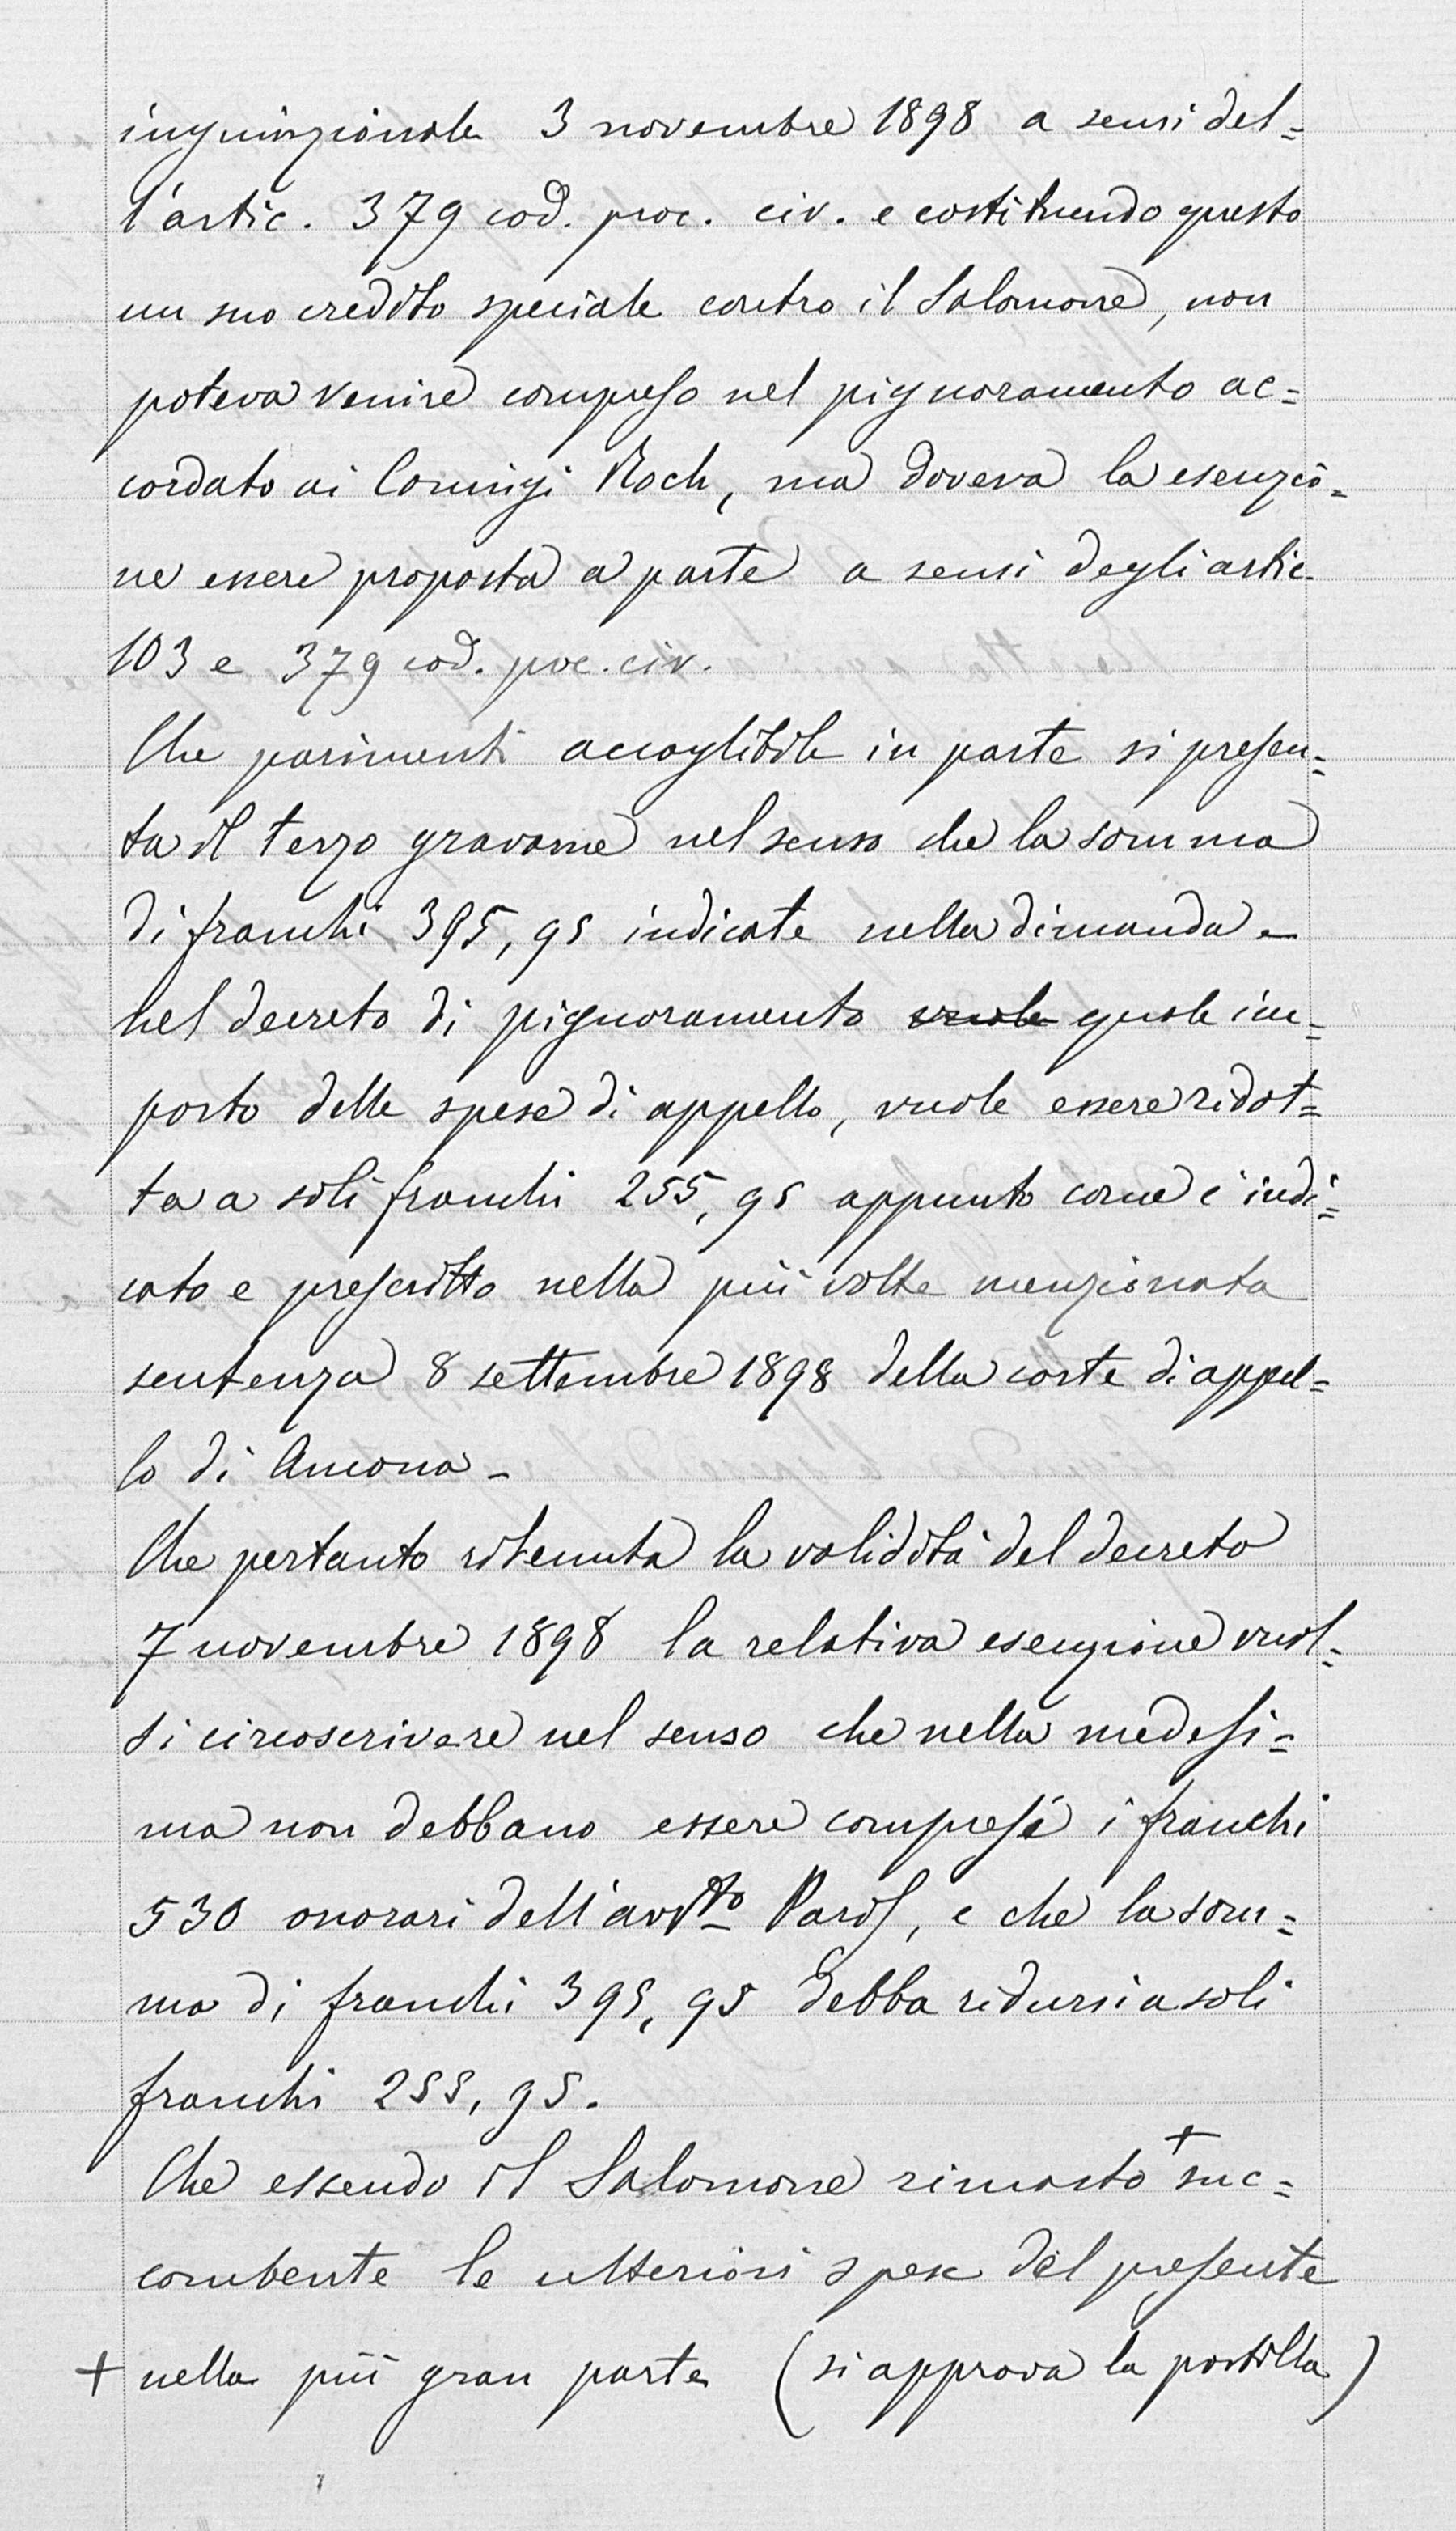 ingiunzionale 3 novembre 1898 a sensi del=
l'artic. 379 cod. proc. civ. e costituendo questo
un suo credito speciale contro il Salomone, non
poteva venire compreso nel pignoramento ac=
cordato ai Coniugi Koch, ma doveva la esenzio=
ne essere proposta a parte a sensi degli artic.
103 e 379 cod. proc. civ.
Che parimenti accoglibile in parte si presen=
ta il terzo gravame nel senso che la somma
di franchi 395,95 indicate nella dimanda e
nel decreto di pignoramento vuole quale im=
porto delle spese di appello, vuole essere ridot=
ta a soli franchi 255,95 appunto come è indi=
cato e prescritto nella più volte menzionata
sentenza 8 settembre 1898 della corte di appel=
lo di Ancona -
Che pertanto ritenuta la validità del decreto
7 novembre 1898 la relativa esenzione vuol=
si circoscrivere nel senso che nella medesi=
ma non debbano essere compresi i franchi
530 onorari dell'avvto , e che la som=
ma di franchi 395,95 debba ridursi a soli
franchi 255,95.
Che essendo il Salomone rimasto + suc=
combente le ulteriori spese del presente
+ nella più gran parte (si approva la postilla)